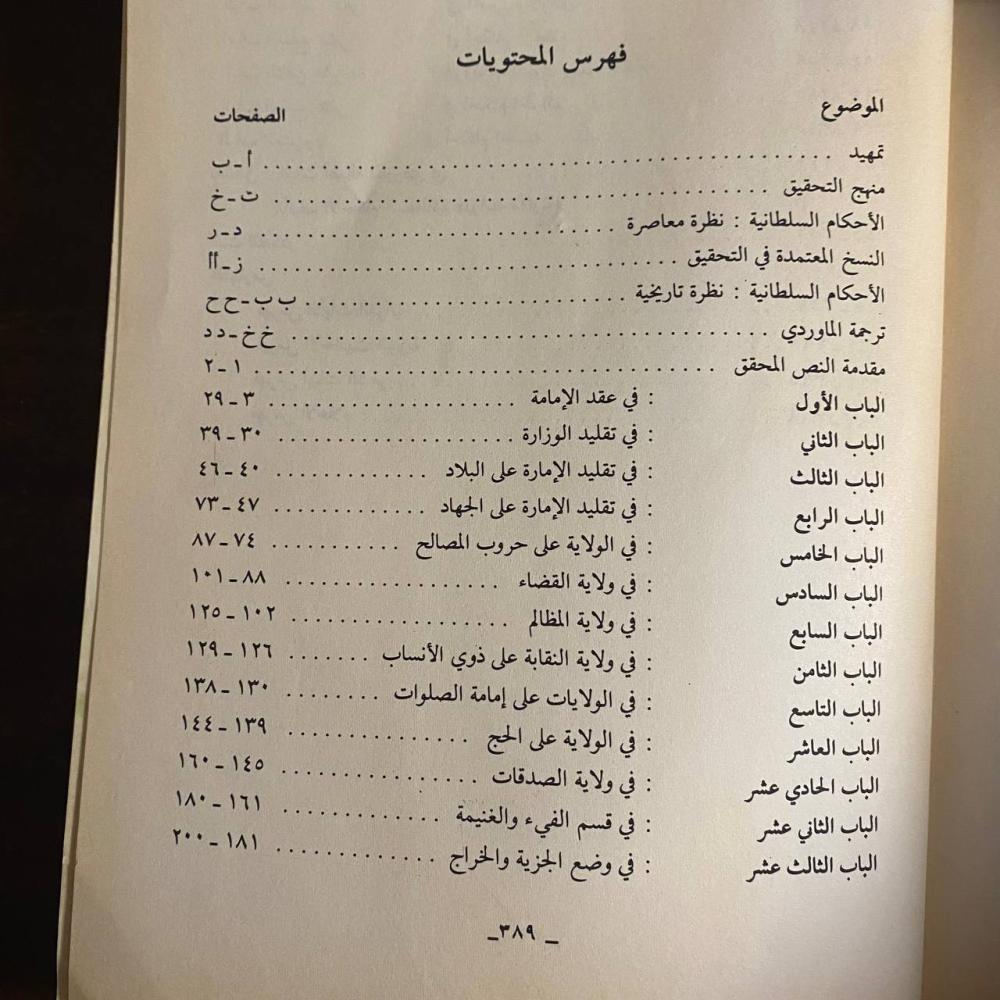 فهرس المحتويات
الموضوع الصفحات
تمهيد أ-ب
منهج التحقيق ت-خ
الأحكام السلطانية : نظرة معاصرة د-ر
النسخ المعتمدة في التحقيق ز-أأ
الأحكام السلطانية : نظرة تاريخية ب ب-ح ح
ترجمة الماوردي خ خ-د د
مقدمة النص المحقق ١-٢
الباب الأول : في عقد الإمامة ٣-٢٩
الباب الثاني : في تقليد الوزارة ٣٠-٣٩
الباب الثالث : في تقليد الإمارة على البلاد ٤٠-٤٦
الباب الرابع : في تقليد الإمارة على الجهاد ٤٧-٧٣
الباب الخامس : في الولاية على حروب المصالح ٧٤-٨٧
الباب السادس : في ولاية القضاء ٨٨-١٠١
الباب السابع : في ولاية المظالم ١٠٢-١٢٥
الباب الثامن : في ولاية النقابة على ذوي الأنساب ١٢٦-١٢٩
الباب التاسع : في الولايات على إمامة الصلوات ١٣٠-١٣٨
الباب العاشر : في الولاية على الحج ١٣٩-١٤٤
الباب الحادي عشر : في ولاية الصدقات ١٤٥-١٦٠
الباب الثاني عشر : في قسم الفيء والغنيمة ١٦١-١٨٠
الباب الثالث عشر : في وضع الجزية والخراج ١٨١-٢٠٠
- ٣٨٩ -